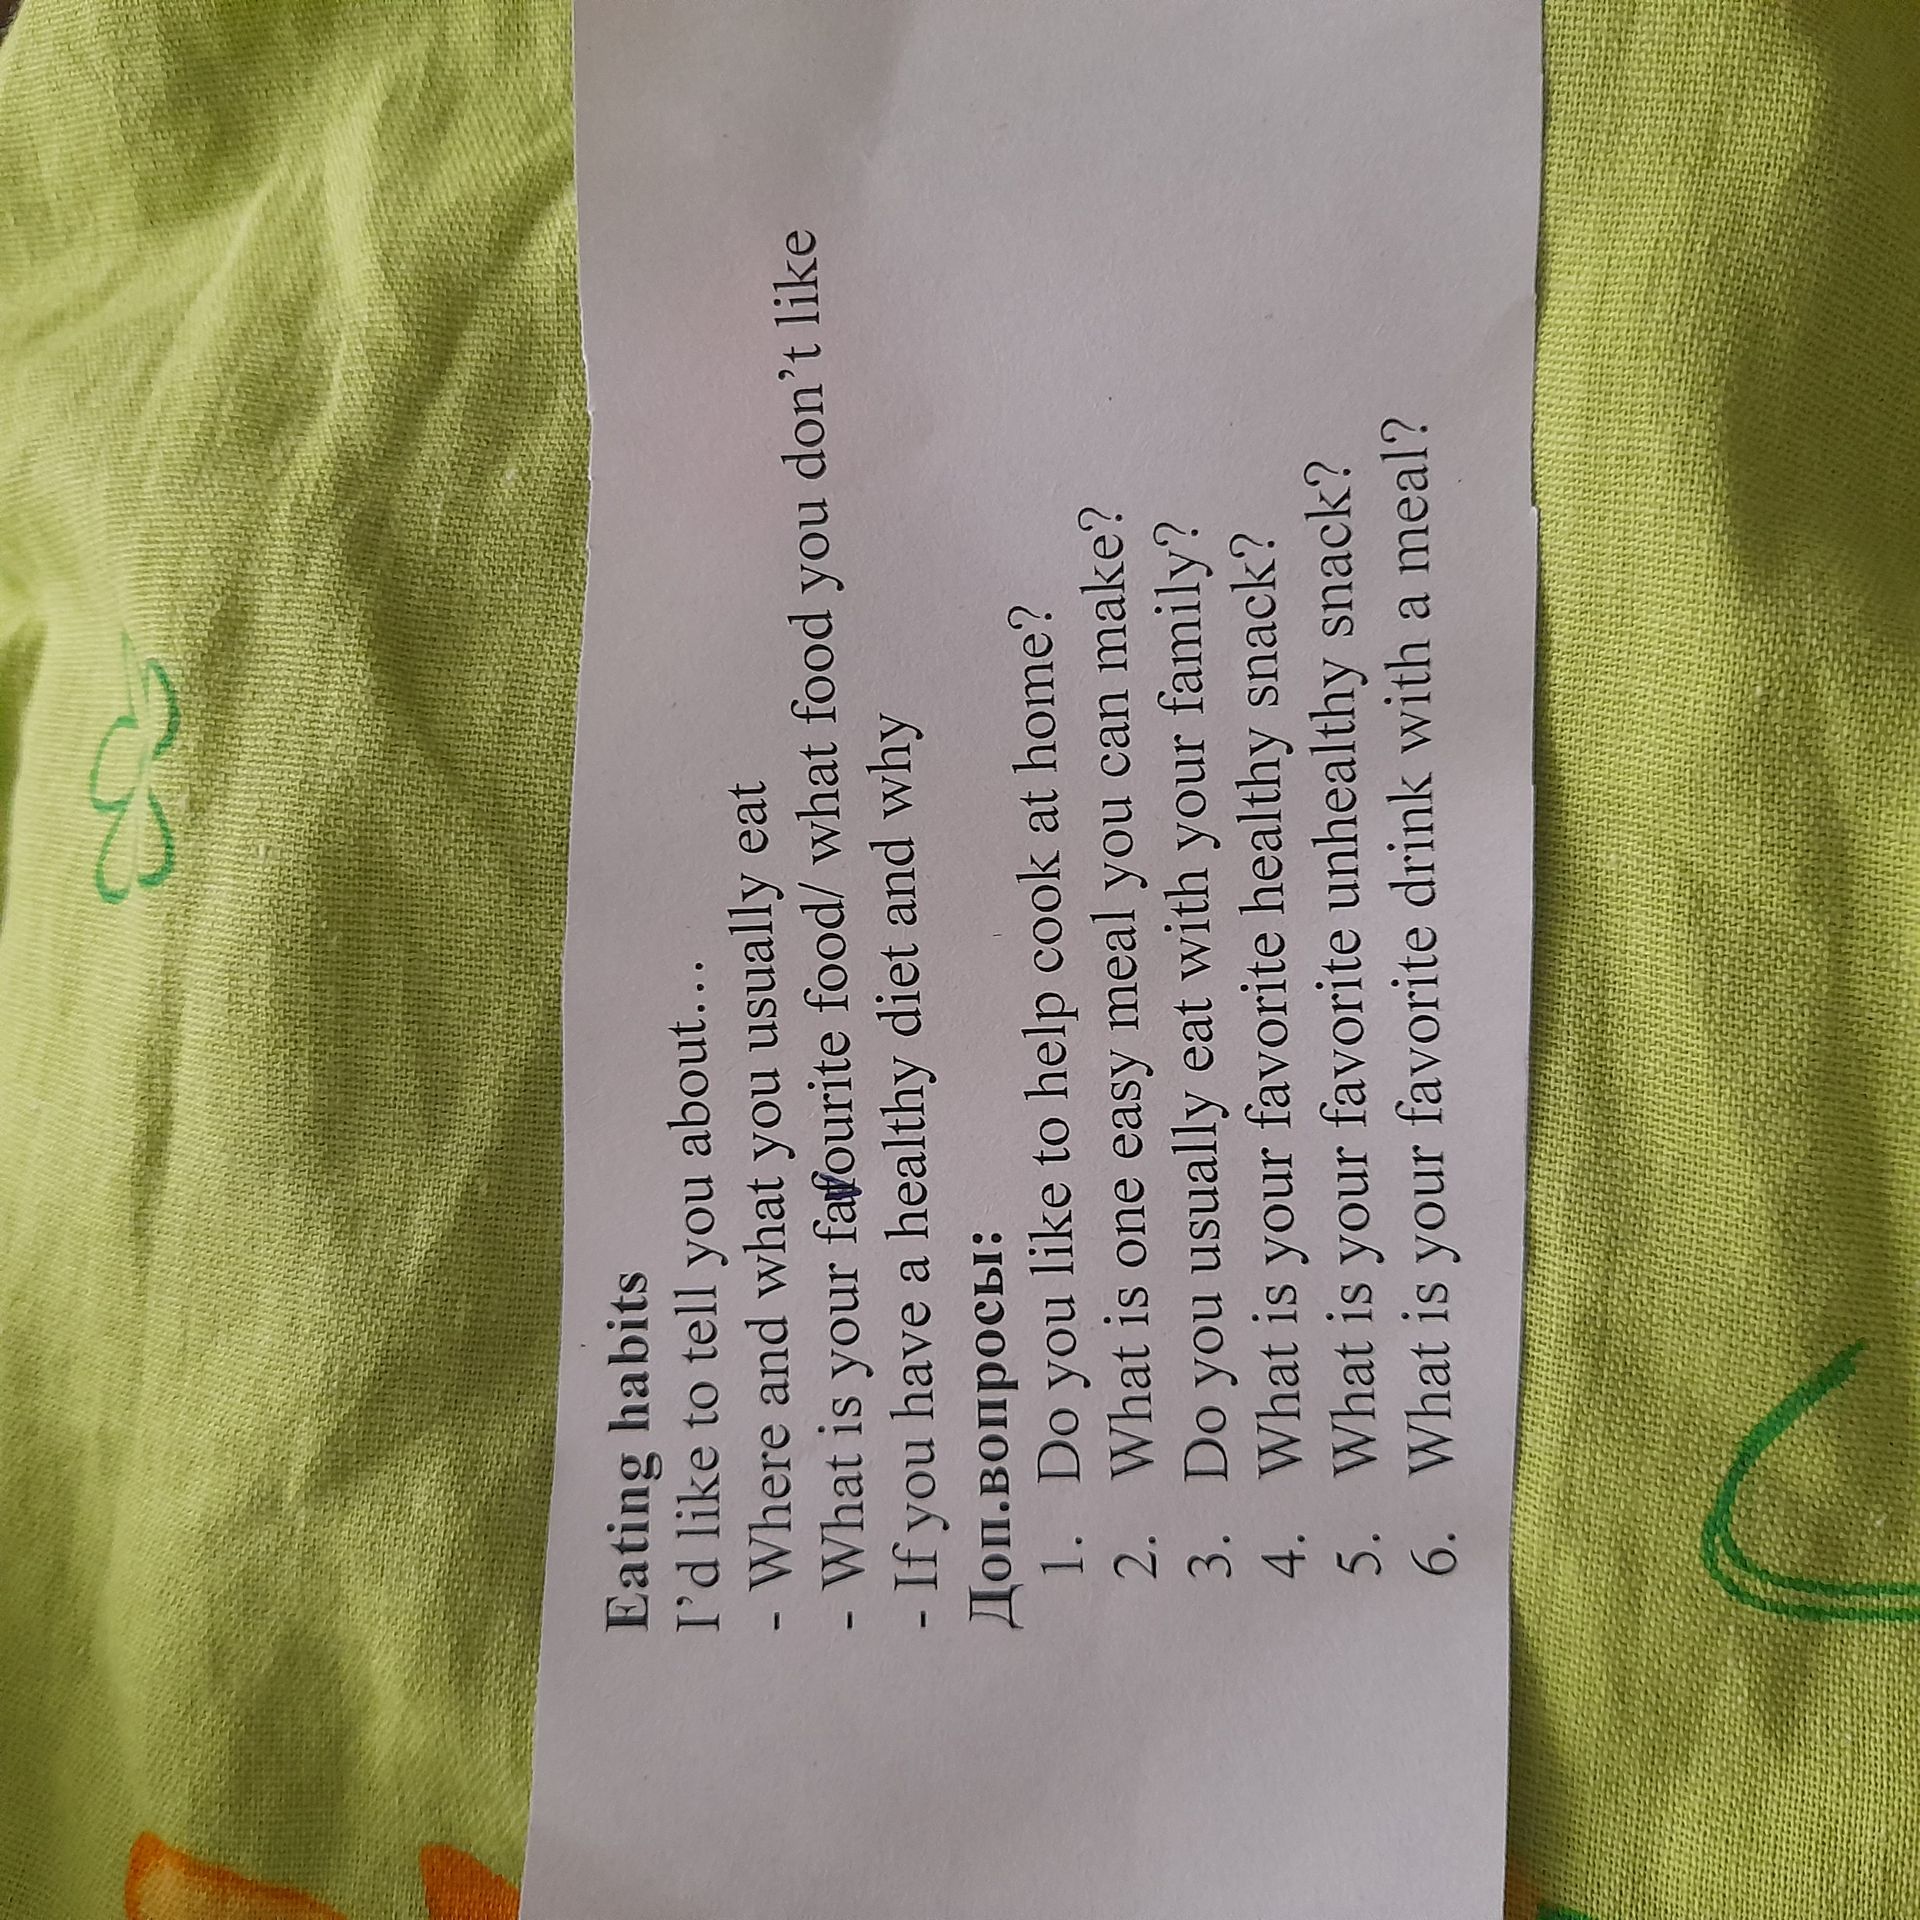 Eating habits
I'd like to tell you about…
- Where and what you usually eat
- What is your favourite food/ what food you don't like
- If you have a healthy diet and why
Доп.вопросы:
1. Do you like to help cook at home?
2. What is one easy meal you can make?
3. Do you usually eat with your family?
4. What is your favorite healthy snack?
5. What is your favorite unhealthy snack?
6. What is your favorite drink with a meal?